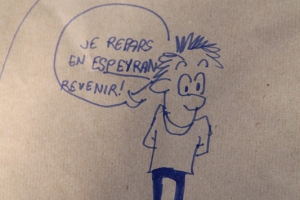 JE REPARS
EN ESPEYRAN
REVENIR!